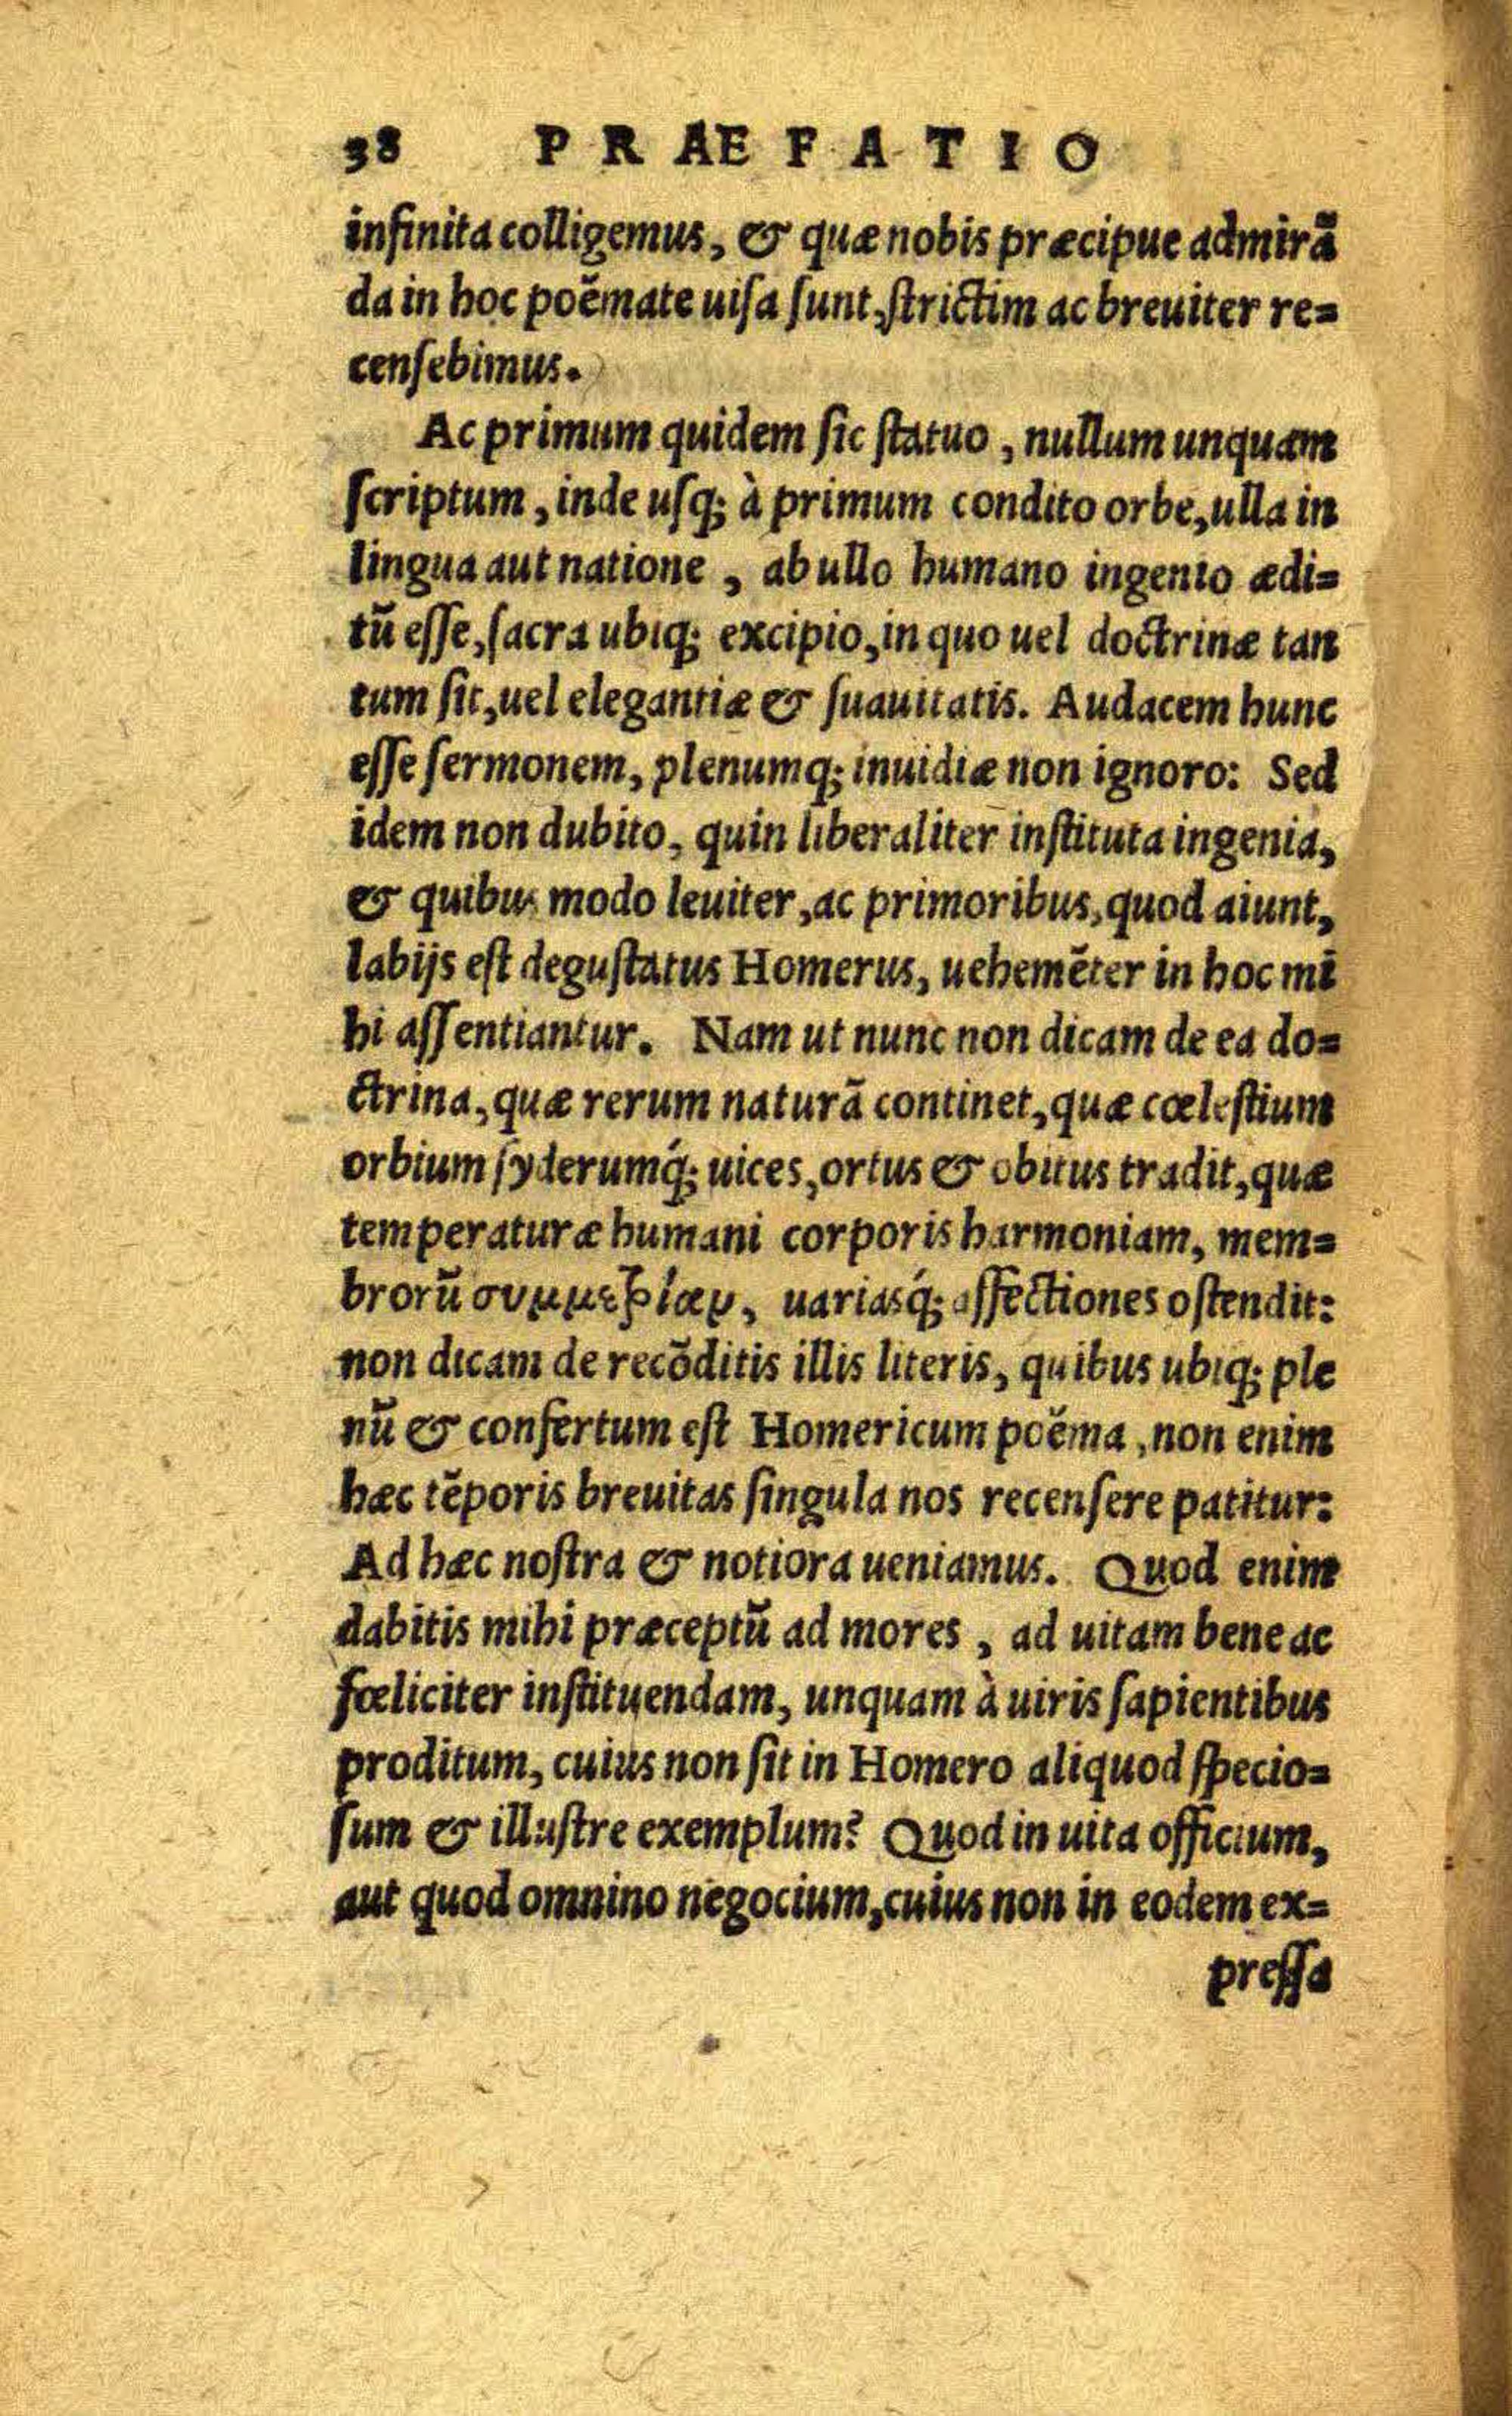 38 PRAEFATIO
infinita colligemus, & quæ nobis præcipue admirã
da in hoc poẽmate uiſa ſunt, ſtrictim ac breuiter re=
cenſebimus.
Ac primum quidem ſic ſtatuo, nullum unquam
ſcriptum, inde uſq; à primum condito orbe, ulla in
lingua aut natione, ab ullo humano ingenio ædi=
tũ eſſe, ſacra ubiq; excipio, in quo uel doctrinæ tan
tum ſit, uel elegantiæ & ſuauitatis. Audacem hunc
eſſe ſermonem, plenumq; inuidiæ non ignoro: Sed
idem non dubito, quin liberaliter inſtituta ingenia,
& quibus modo leuiter, ac primoribus, quod aiunt,
labijs eſt deguſtatus Homerus, uehemẽter in hoc mi
hi aſſentiantur. Nam ut nunc non dicam de ea do=
ctrina, quæ rerum naturã continet, quæ cœleſtium
orbium ſyderumq́; uices, ortus & obitus tradit, quæ
temperaturæ humani corporis harmoniam, mem=
brorũ συμμετρίαν, uariasq́; affectiones oſtendit:
non dicam de recõditis illis literis, quibus ubiq; ple
nũ & confertum eſt Homericum poẽma, non enim
hæc tẽporis breuitas ſingula nos recenſere patitur:
Ad hæc noſtra & notiora ueniamus. Quod enim
dabitis mihi præceptũ ad mores, ad uitam bene ac
fœliciter inſtituendam, unquam à uiris ſapientibus
proditum, cuius non ſit in Homero aliquod ſpecio=
ſum & illuſtre exemplum? Quod in uita officium,
aut quod omnino negocium, cuius non in eodem ex=
preſſa